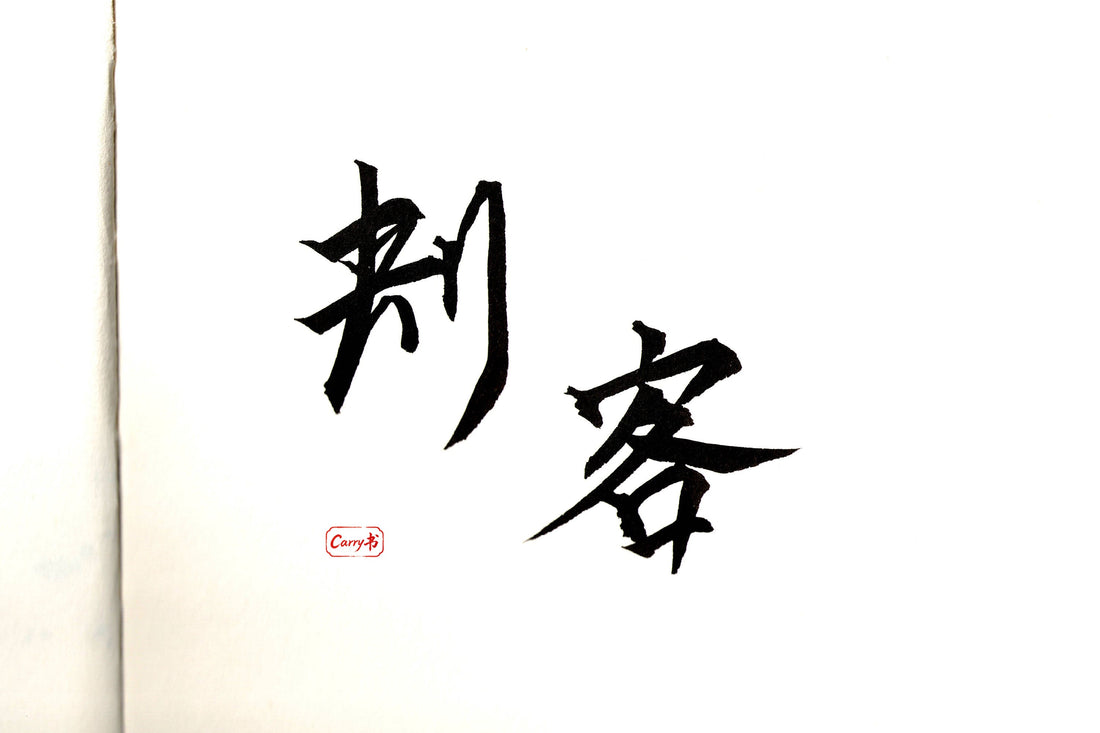 刺客
Carry书